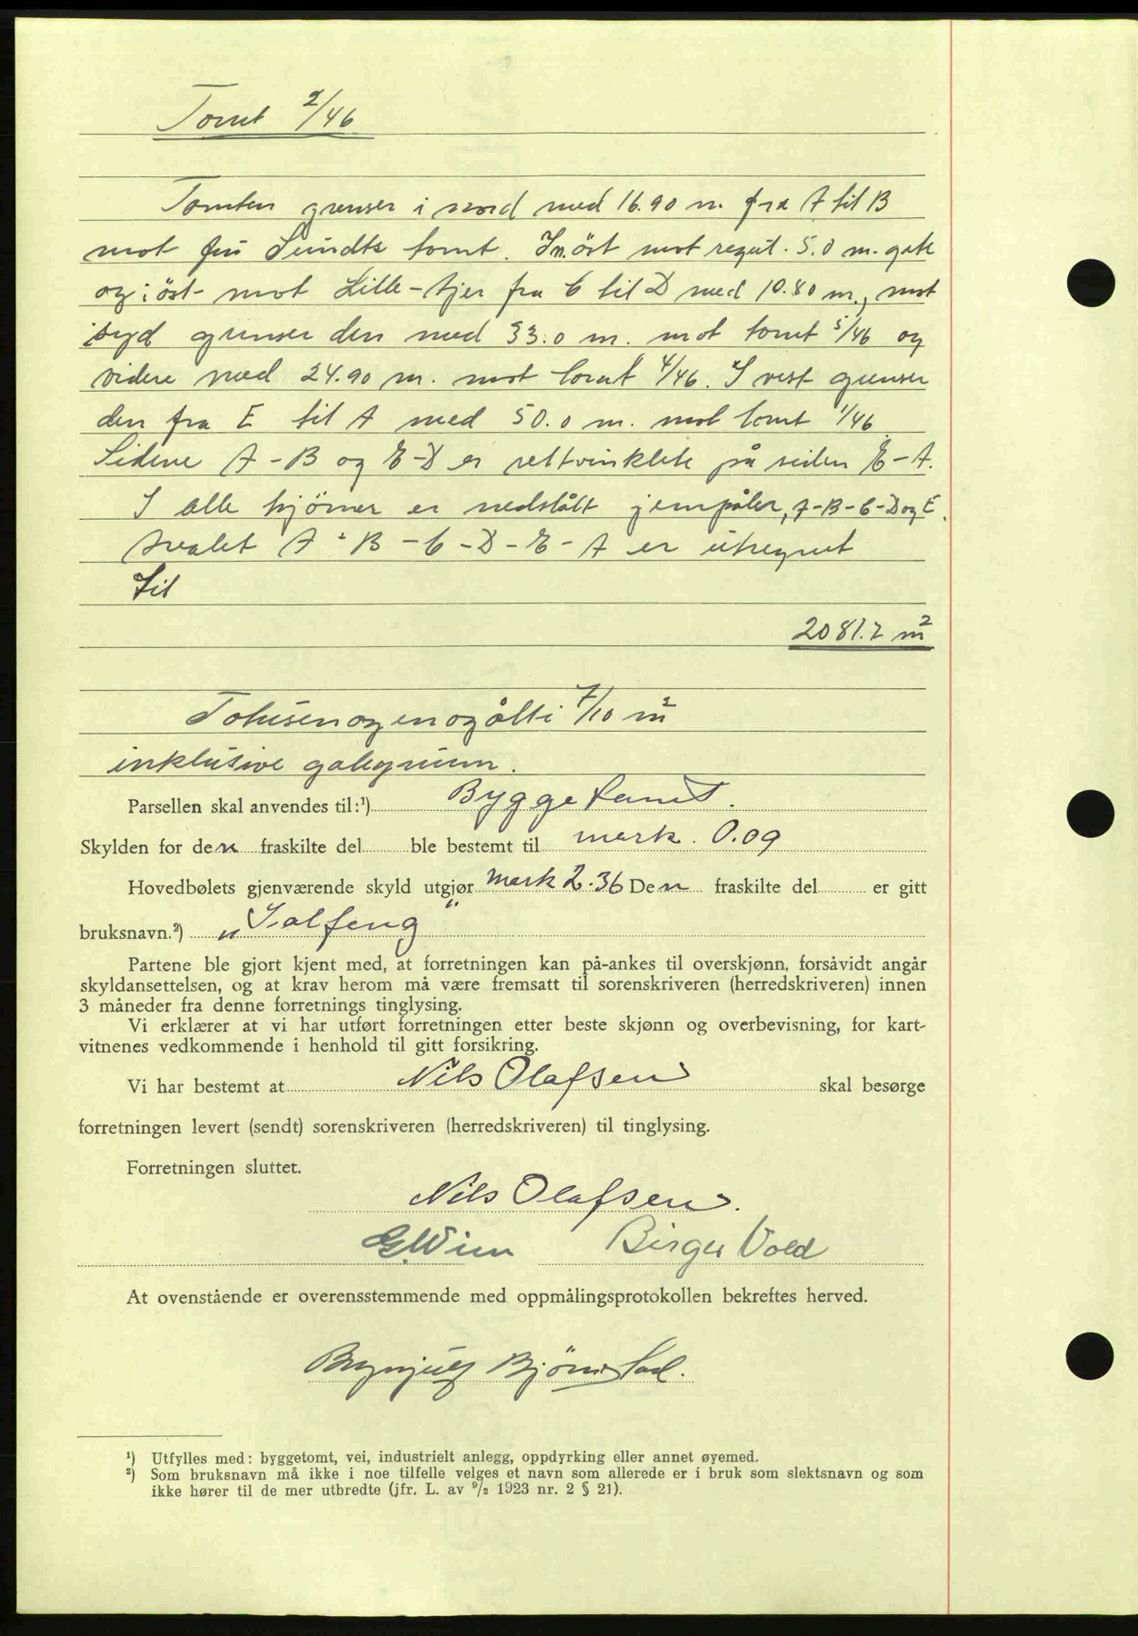 Tomt 2/46
Tomten grenser i nord med 16.90 m. fra A til B
mot fru Sundts tomt. I n.öst mot regul. 5.0 m. gate
og i öst- mot Lille-tjer fra C til D med 10.80 m., mot
syd grenser den med 33.0 m. mot tomt 5/46 og
videre med 24.90 m. mot tomt 4/46. I vest grenser
den fra E til A med 50.0 m. mot tomt 1/46
Sidene A - B og E - D er rettvinklete på siden E - A.
I alle hjörner er nedslått jernpåler, A-B-C-D og E.
Arealet A - B - C - D - E - A er utregnet
til
2081.7 m2
Totusenogenogåtti 7/10 m2
inklusive gategrunn.
Parsellen skal anvendes til:¹) Byggetomt.
Skylden for den fraskilte del ble bestemt til mark. 0.09
Hovedbølets gjenværende skyld utgjør mark 2.36 Den fraskilte del er gitt
bruksnavn.²) "Solfeng"
Partene ble gjort kjent med, at forretningen kan på-ankes til overskjønn, forsåvidt angår
skyldansettelsen, og at krav herom må være fremsatt til sorenskriveren (herredskriveren) innen
3 måneder fra denne forretnings tinglysing.
Vi erklærer at vi har utført forretningen etter beste skjønn og overbevisning, for kart-
vitnenes vedkommende i henhold til gitt forsikring.
Vi har bestemt at Nils Olafsen skal besørge
forretningen levert (sendt) sorenskriveren (herredskriveren) til tinglysing.
Forretningen sluttet.
Nils Olafsen.
E. Wien Birger Vold
At ovenstående er overensstemmende med oppmålingsprotokollen bekreftes herved.
Brynjulf Bjørnstad.
¹) Utfylles med: byggetomt, vei, industrielt anlegg, oppdyrking eller annet øyemed.
²) Som bruksnavn må ikke i noe tilfelle velges et navn som allerede er i bruk som slektsnavn og som
ikke hører til de mer utbredte (jfr. L. av 9/2 1923 nr. 2 § 21).